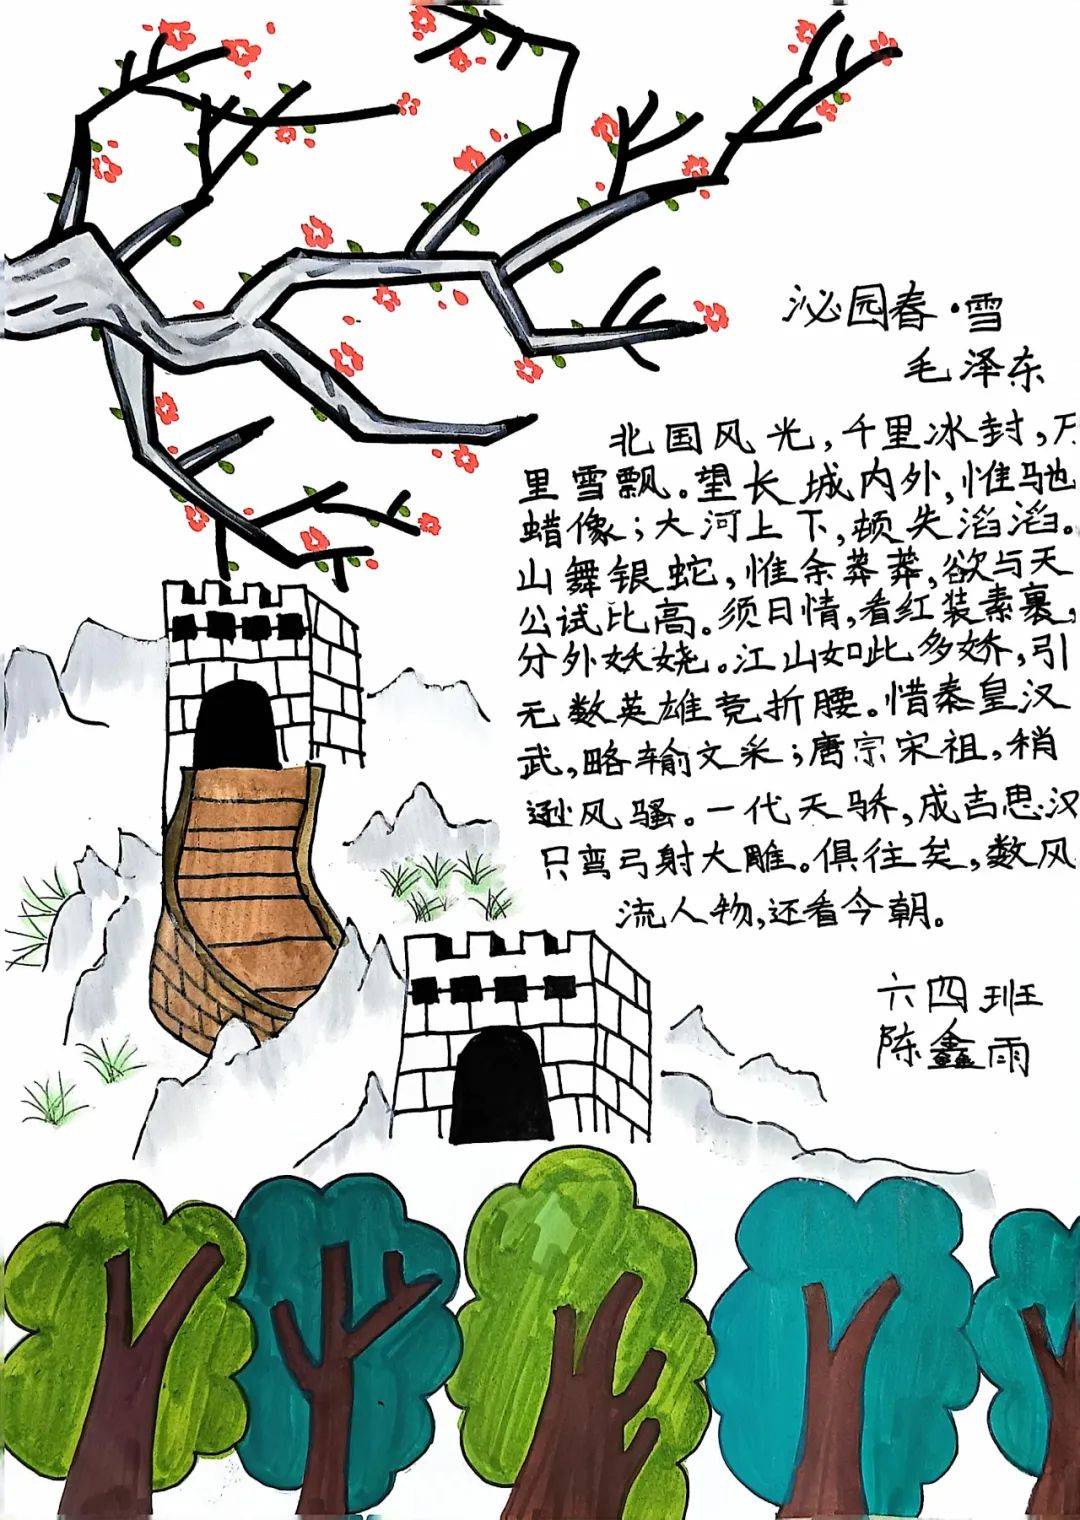 泌园春·雪
毛泽东
北国风光，千里冰封，万
里雪飘。望长城内外，惟驰
蜡像；大河上下，顿失滔滔。
山舞银蛇，惟余莽莽，欲与天
公试比高。须日情，看红装素裹，
分外妖娆。江山如此多娇，引
无数英雄竞折腰。惜秦皇汉
武，略输文采；唐宗宋祖，稍
逊风骚。一代天骄，成吉思汉
只弯弓射大雕。俱往矣，数风
流人物，还看今朝。
六四班
陈鑫雨